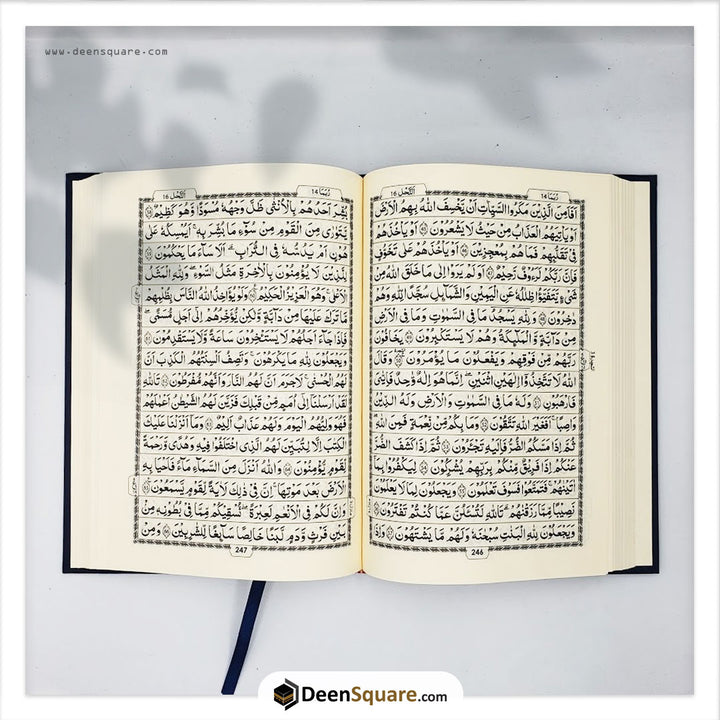 www.deensquare.com
رُبَمَا ١٤
اَلنَّحْل ١٦
اَفَاَمِنَ الَّذِيْنَ مَكَرُوا السَّيِّاٰتِ اَنْ يَّخْسِفَ اللّٰهُ بِهِمُ الْاَرْضَ
اَوْ يَاْتِيَهُمُ الْعَذَابُ مِنْ حَيْثُ لَا يَشْعُرُوْنَ ﴿٤٥﴾ اَوْ يَاْخُذَهُمْ
فِيْ تَقَلُّبِهِمْ فَمَا هُمْ بِمُعْجِزِيْنَ ﴿٤٦﴾ اَوْ يَاْخُذَهُمْ عَلٰى تَخَوُّفٍ
فَاِنَّ رَبَّكُمْ لَرَءُوْفٌ رَّحِيْمٌ ﴿٤٧﴾ اَوَلَمْ يَرَوْا اِلٰى مَا خَلَقَ اللّٰهُ مِنْ
شَيْءٍ يَّتَفَيَّؤُا ظِلٰلُهٗ عَنِ الْيَمِيْنِ وَالشَّمَآئِلِ سُجَّدًا لِّلّٰهِ وَهُمْ
دٰخِرُوْنَ ﴿٤٨﴾ وَلِلّٰهِ يَسْجُدُ مَا فِي السَّمٰوٰتِ وَمَا فِي الْاَرْضِ
مِنْ دَآبَّةٍ وَّالْمَلٰٓئِكَةُ وَهُمْ لَا يَسْتَكْبِرُوْنَ ﴿٤٩﴾ يَخَافُوْنَ
رَبَّهُمْ مِّنْ فَوْقِهِمْ وَيَفْعَلُوْنَ مَا يُؤْمَرُوْنَ ﴿٥٠﴾ وَقَالَ
اللّٰهُ لَا تَتَّخِذُوْٓا اِلٰهَيْنِ اثْنَيْنِ ۚ اِنَّمَا هُوَ اِلٰهٌ وَّاحِدٌ ۚ فَاِيَّايَ
فَارْهَبُوْنِ ﴿٥١﴾ وَلَهٗ مَا فِي السَّمٰوٰتِ وَالْاَرْضِ وَلَهُ الدِّيْنُ
وَاصِبًا ؕ اَفَغَيْرَ اللّٰهِ تَتَّقُوْنَ ﴿٥٢﴾ وَمَا بِكُمْ مِّنْ نِّعْمَةٍ فَمِنَ اللّٰهِ
ثُمَّ اِذَا مَسَّكُمُ الضُّرُّ فَاِلَيْهِ تَجْـَٔرُوْنَ ﴿٥٣﴾ ثُمَّ اِذَا كَشَفَ الضُّرَّ
عَنْكُمْ اِذَا فَرِيْقٌ مِّنْكُمْ بِرَبِّهِمْ يُشْرِكُوْنَ ﴿٥٤﴾ لِيَكْفُرُوْا بِمَآ
اٰتَيْنٰهُمْ ؕ فَتَمَتَّعُوْا ۟ فَسَوْفَ تَعْلَمُوْنَ ﴿٥٥﴾ وَيَجْعَلُوْنَ لِمَا لَا يَعْلَمُوْنَ
نَصِيْبًا مِّمَّا رَزَقْنٰهُمْ ؕ تَاللّٰهِ لَتُسْـَٔلُنَّ عَمَّا كُنْتُمْ تَفْتَرُوْنَ ﴿٥٦﴾
وَيَجْعَلُوْنَ لِلّٰهِ الْبَنٰتِ سُبْحٰنَهٗ ۙ وَلَهُمْ مَّا يَشْتَهُوْنَ ﴿٥٧﴾ وَاِذَا
246
رُبَمَا ١٤
اَلنَّحْل ١٦
بُشِّرَ اَحَدُهُمْ بِالْاُنْثٰى ظَلَّ وَجْهُهٗ مُسْوَدًّا وَّهُوَ كَظِيْمٌ ﴿٥٨﴾
يَتَوَارٰى مِنَ الْقَوْمِ مِنْ سُوْٓءِ مَا بُشِّرَ بِهٖ ؕ اَيُمْسِكُهٗ عَلٰى
هُوْنٍ اَمْ يَدُسُّهٗ فِي التُّرَابِ ؕ اَلَا سَآءَ مَا يَحْكُمُوْنَ ﴿٥٩﴾
لِلَّذِيْنَ لَا يُؤْمِنُوْنَ بِالْاٰخِرَةِ مَثَلُ السَّوْءِ ۚ وَلِلّٰهِ الْمَثَلُ
الْاَعْلٰى ؕ وَهُوَ الْعَزِيْزُ الْحَكِيْمُ ﴿٦٠﴾ وَلَوْ يُؤَاخِذُ اللّٰهُ النَّاسَ بِظُلْمِهِمْ
مَّا تَرَكَ عَلَيْهَا مِنْ دَآبَّةٍ وَّلٰكِنْ يُّؤَخِّرُهُمْ اِلٰٓى اَجَلٍ مُّسَمًّى ۚ
فَاِذَا جَآءَ اَجَلُهُمْ لَا يَسْتَاْخِرُوْنَ سَاعَةً وَّلَا يَسْتَقْدِمُوْنَ ﴿٦١﴾
وَيَجْعَلُوْنَ لِلّٰهِ مَا يَكْرَهُوْنَ وَتَصِفُ اَلْسِنَتُهُمُ الْكَذِبَ اَنَّ
لَهُمُ الْحُسْنٰى ؕ لَا جَرَمَ اَنَّ لَهُمُ النَّارَ وَاَنَّهُمْ مُّفْرَطُوْنَ ﴿٦٢﴾ تَاللّٰهِ
لَقَدْ اَرْسَلْنَآ اِلٰٓى اُمَمٍ مِّنْ قَبْلِكَ فَزَيَّنَ لَهُمُ الشَّيْطٰنُ اَعْمَالَهُمْ
فَهُوَ وَلِيُّهُمُ الْيَوْمَ وَلَهُمْ عَذَابٌ اَلِيْمٌ ﴿٦٣﴾ وَمَآ اَنْزَلْنَا عَلَيْكَ
الْكِتٰبَ اِلَّا لِتُبَيِّنَ لَهُمُ الَّذِي اخْتَلَفُوْا فِيْهِ ۙ وَهُدًى وَّرَحْمَةً
لِّقَوْمٍ يُّؤْمِنُوْنَ ﴿٦٤﴾ وَاللّٰهُ اَنْزَلَ مِنَ السَّمَآءِ مَآءً فَاَحْيَا بِهِ
الْاَرْضَ بَعْدَ مَوْتِهَا ؕ اِنَّ فِيْ ذٰلِكَ لَاٰيَةً لِّقَوْمٍ يَّسْمَعُوْنَ ﴿٦٥﴾
وَاِنَّ لَكُمْ فِي الْاَنْعَامِ لَعِبْرَةً ؕ نُسْقِيْكُمْ مِّمَّا فِيْ بُطُوْنِهٖ مِنْۢ
بَيْنِ فَرْثٍ وَّدَمٍ لَّبَنًا خَالِصًا سَآئِغًا لِّلشّٰرِبِيْنَ ﴿٦٦﴾ وَمِنْ
247
DeenSquare.com